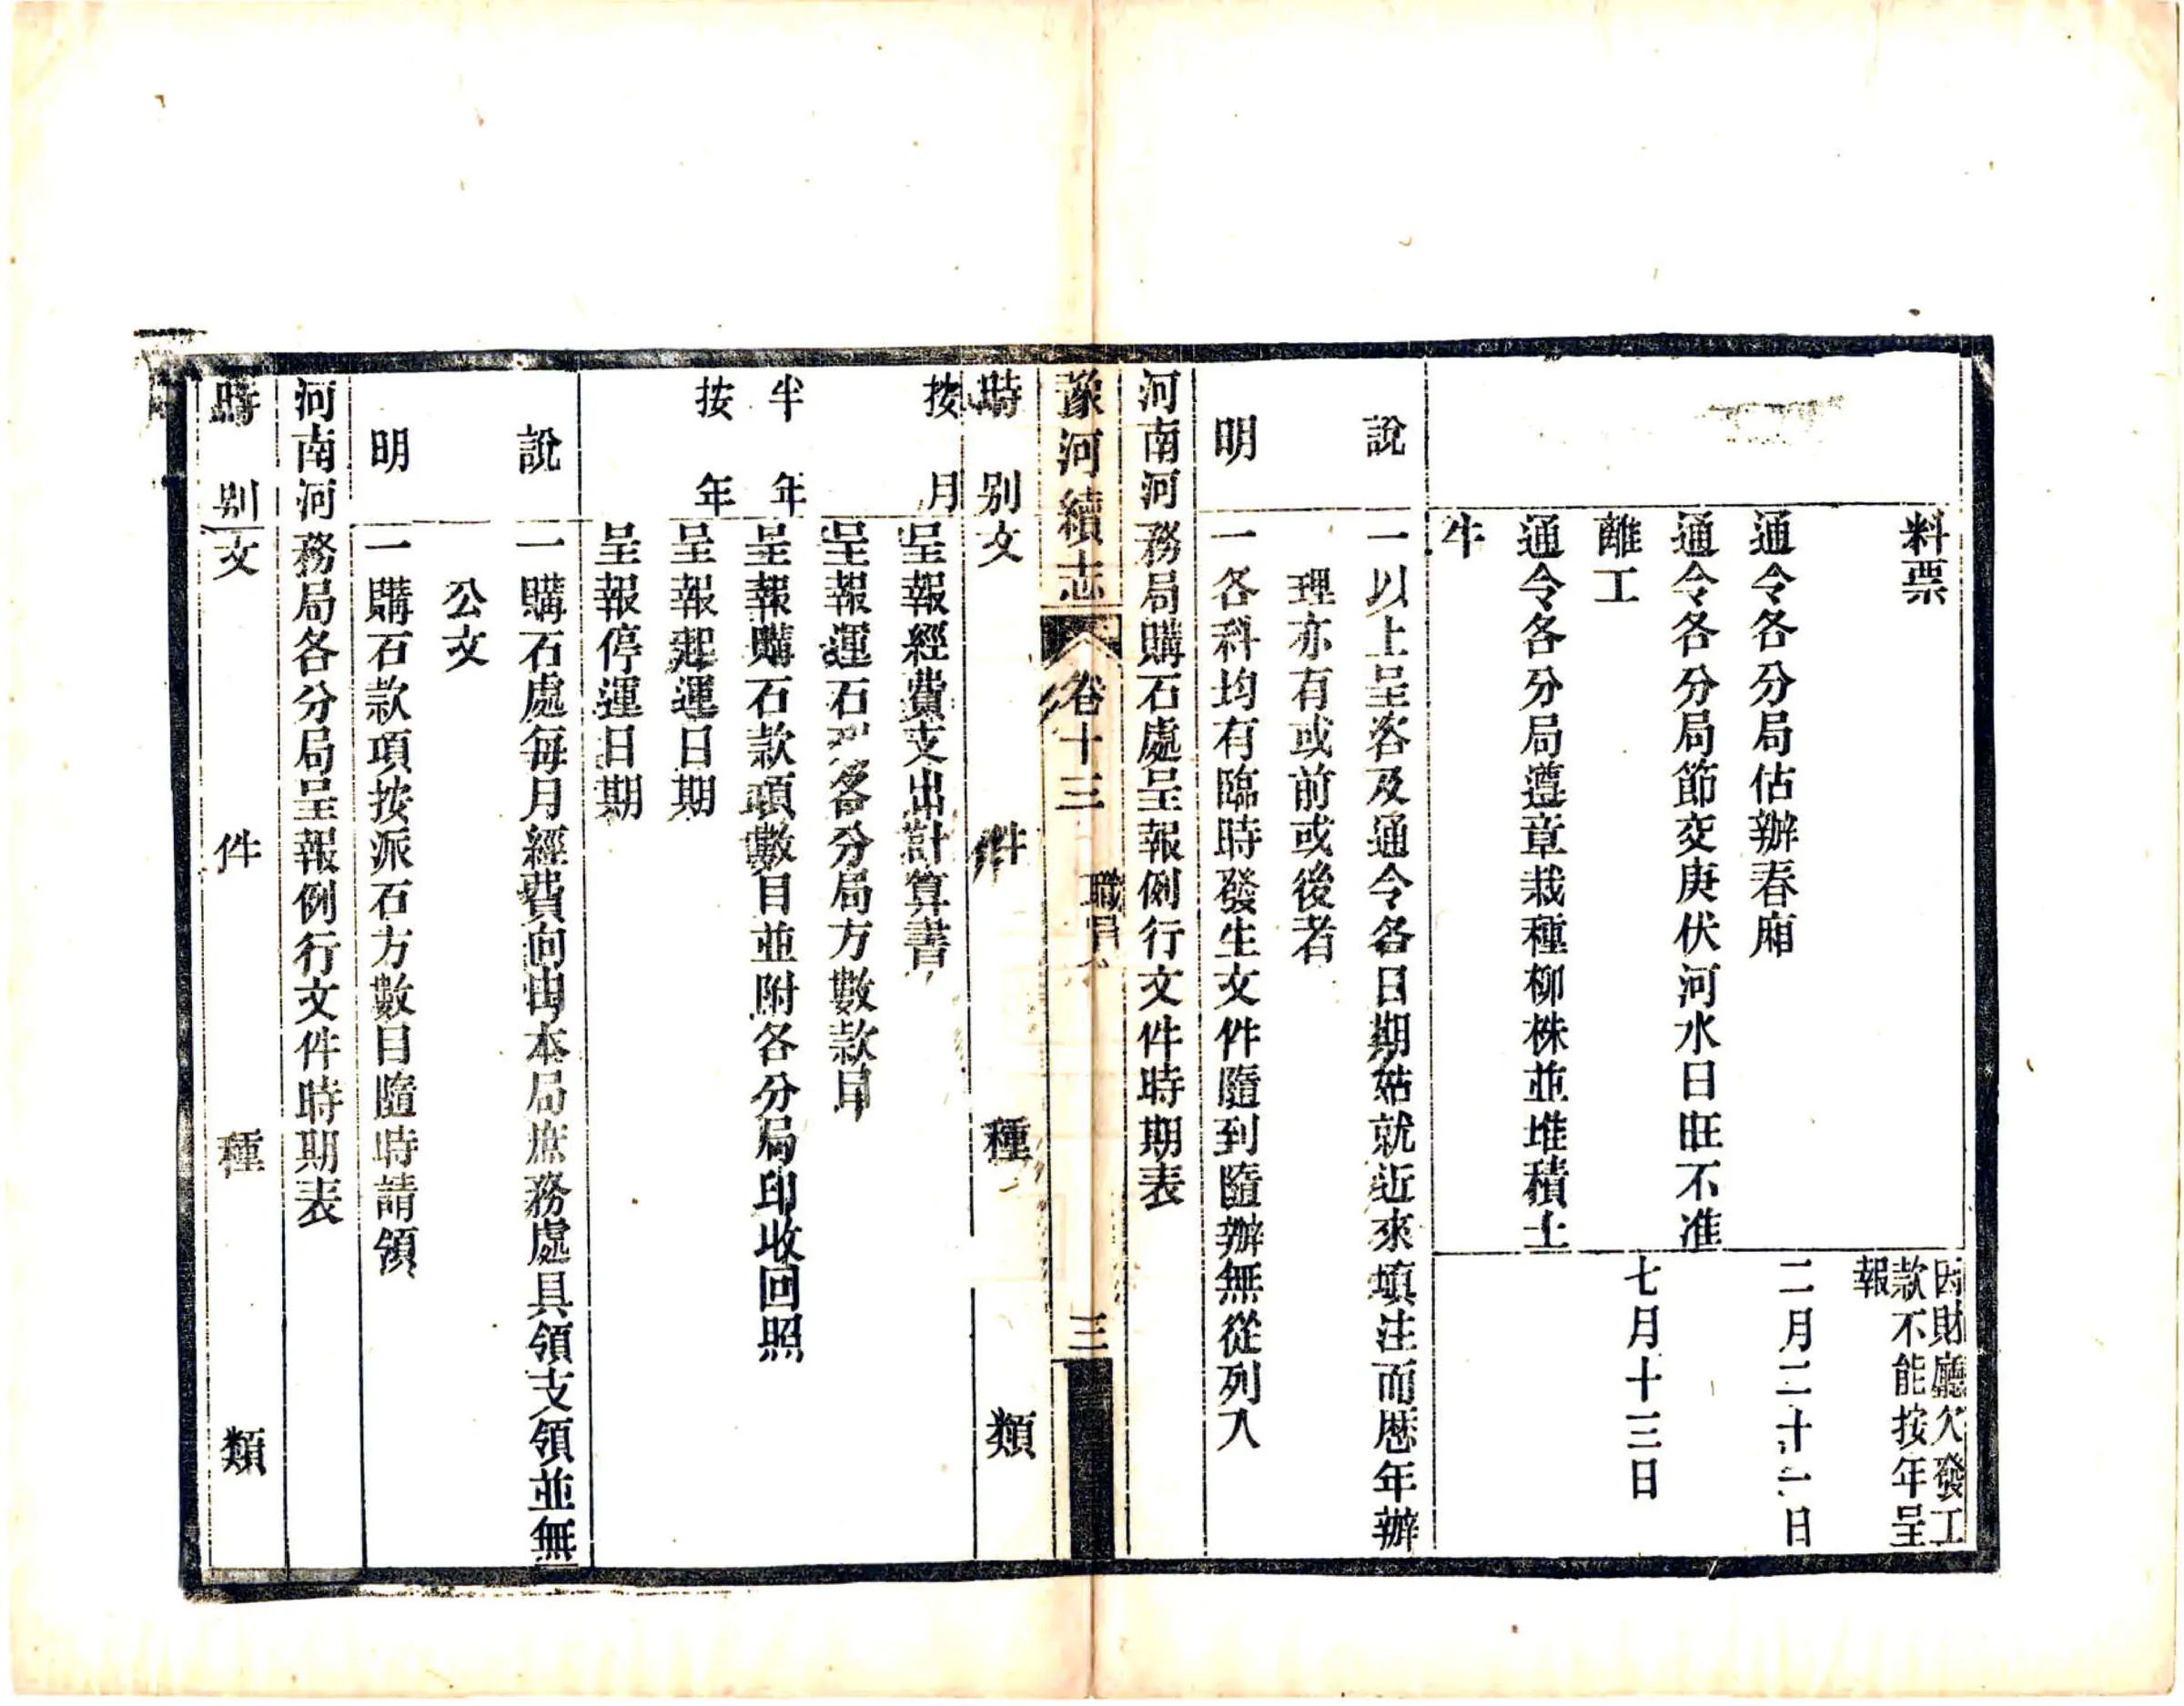 料票
因財廳欠發工
款不能按年呈
報
通令各分局估辦春廂
二月二十二日
通令各分局節交庚伏河水日旺不准
離工
七月十三日
通令各分局遵章栽種柳株並堆積土
牛
說
一以上呈咨及通令各日期姑就近來填注而歷年辦
理亦有或前或後者
明
一各科均有臨時發生文件隨到隨辦無從列入
河南河務局購石處呈報例行文件時期表
豫河續志
卷十三
職官
三
時別
文件種類
按月
呈報經費支出計算書
呈報運石到各分局方數款目
半年
呈報購石款項數目並附各分局印收回照
按年
呈報起運日期
呈報停運日期
說
一購石處每月經費向由本局庶務處具領支領並無
公文
明
一購石款項按派石方數目隨時請領
河南河務局各分局呈報例行文件時期表
時別
文件種類